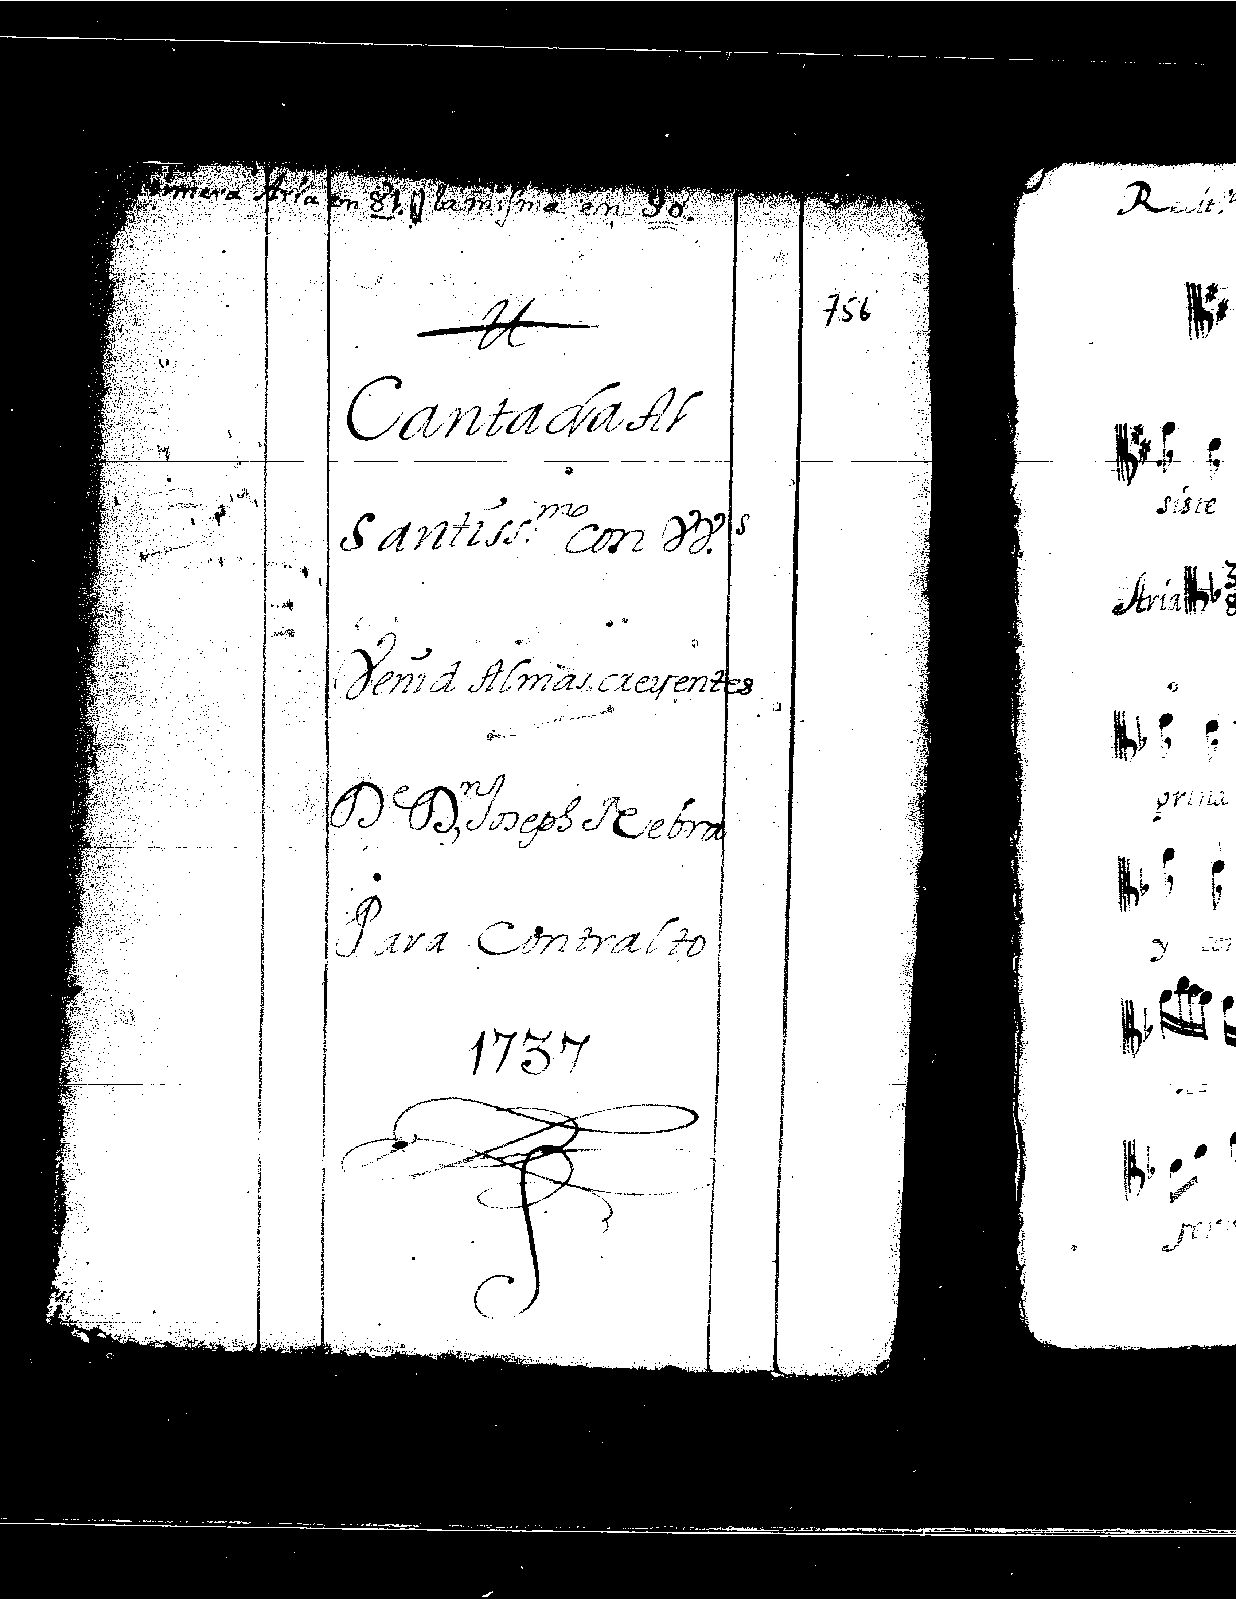 Primera Aria en 81. y la misma en 90.
756
Cantada Al
Santiss.mo con VV.s
Venid Almas creyentes
De Dn Joseph Nebra
Para Contralto
1737
Recit.
siste
Aria
y